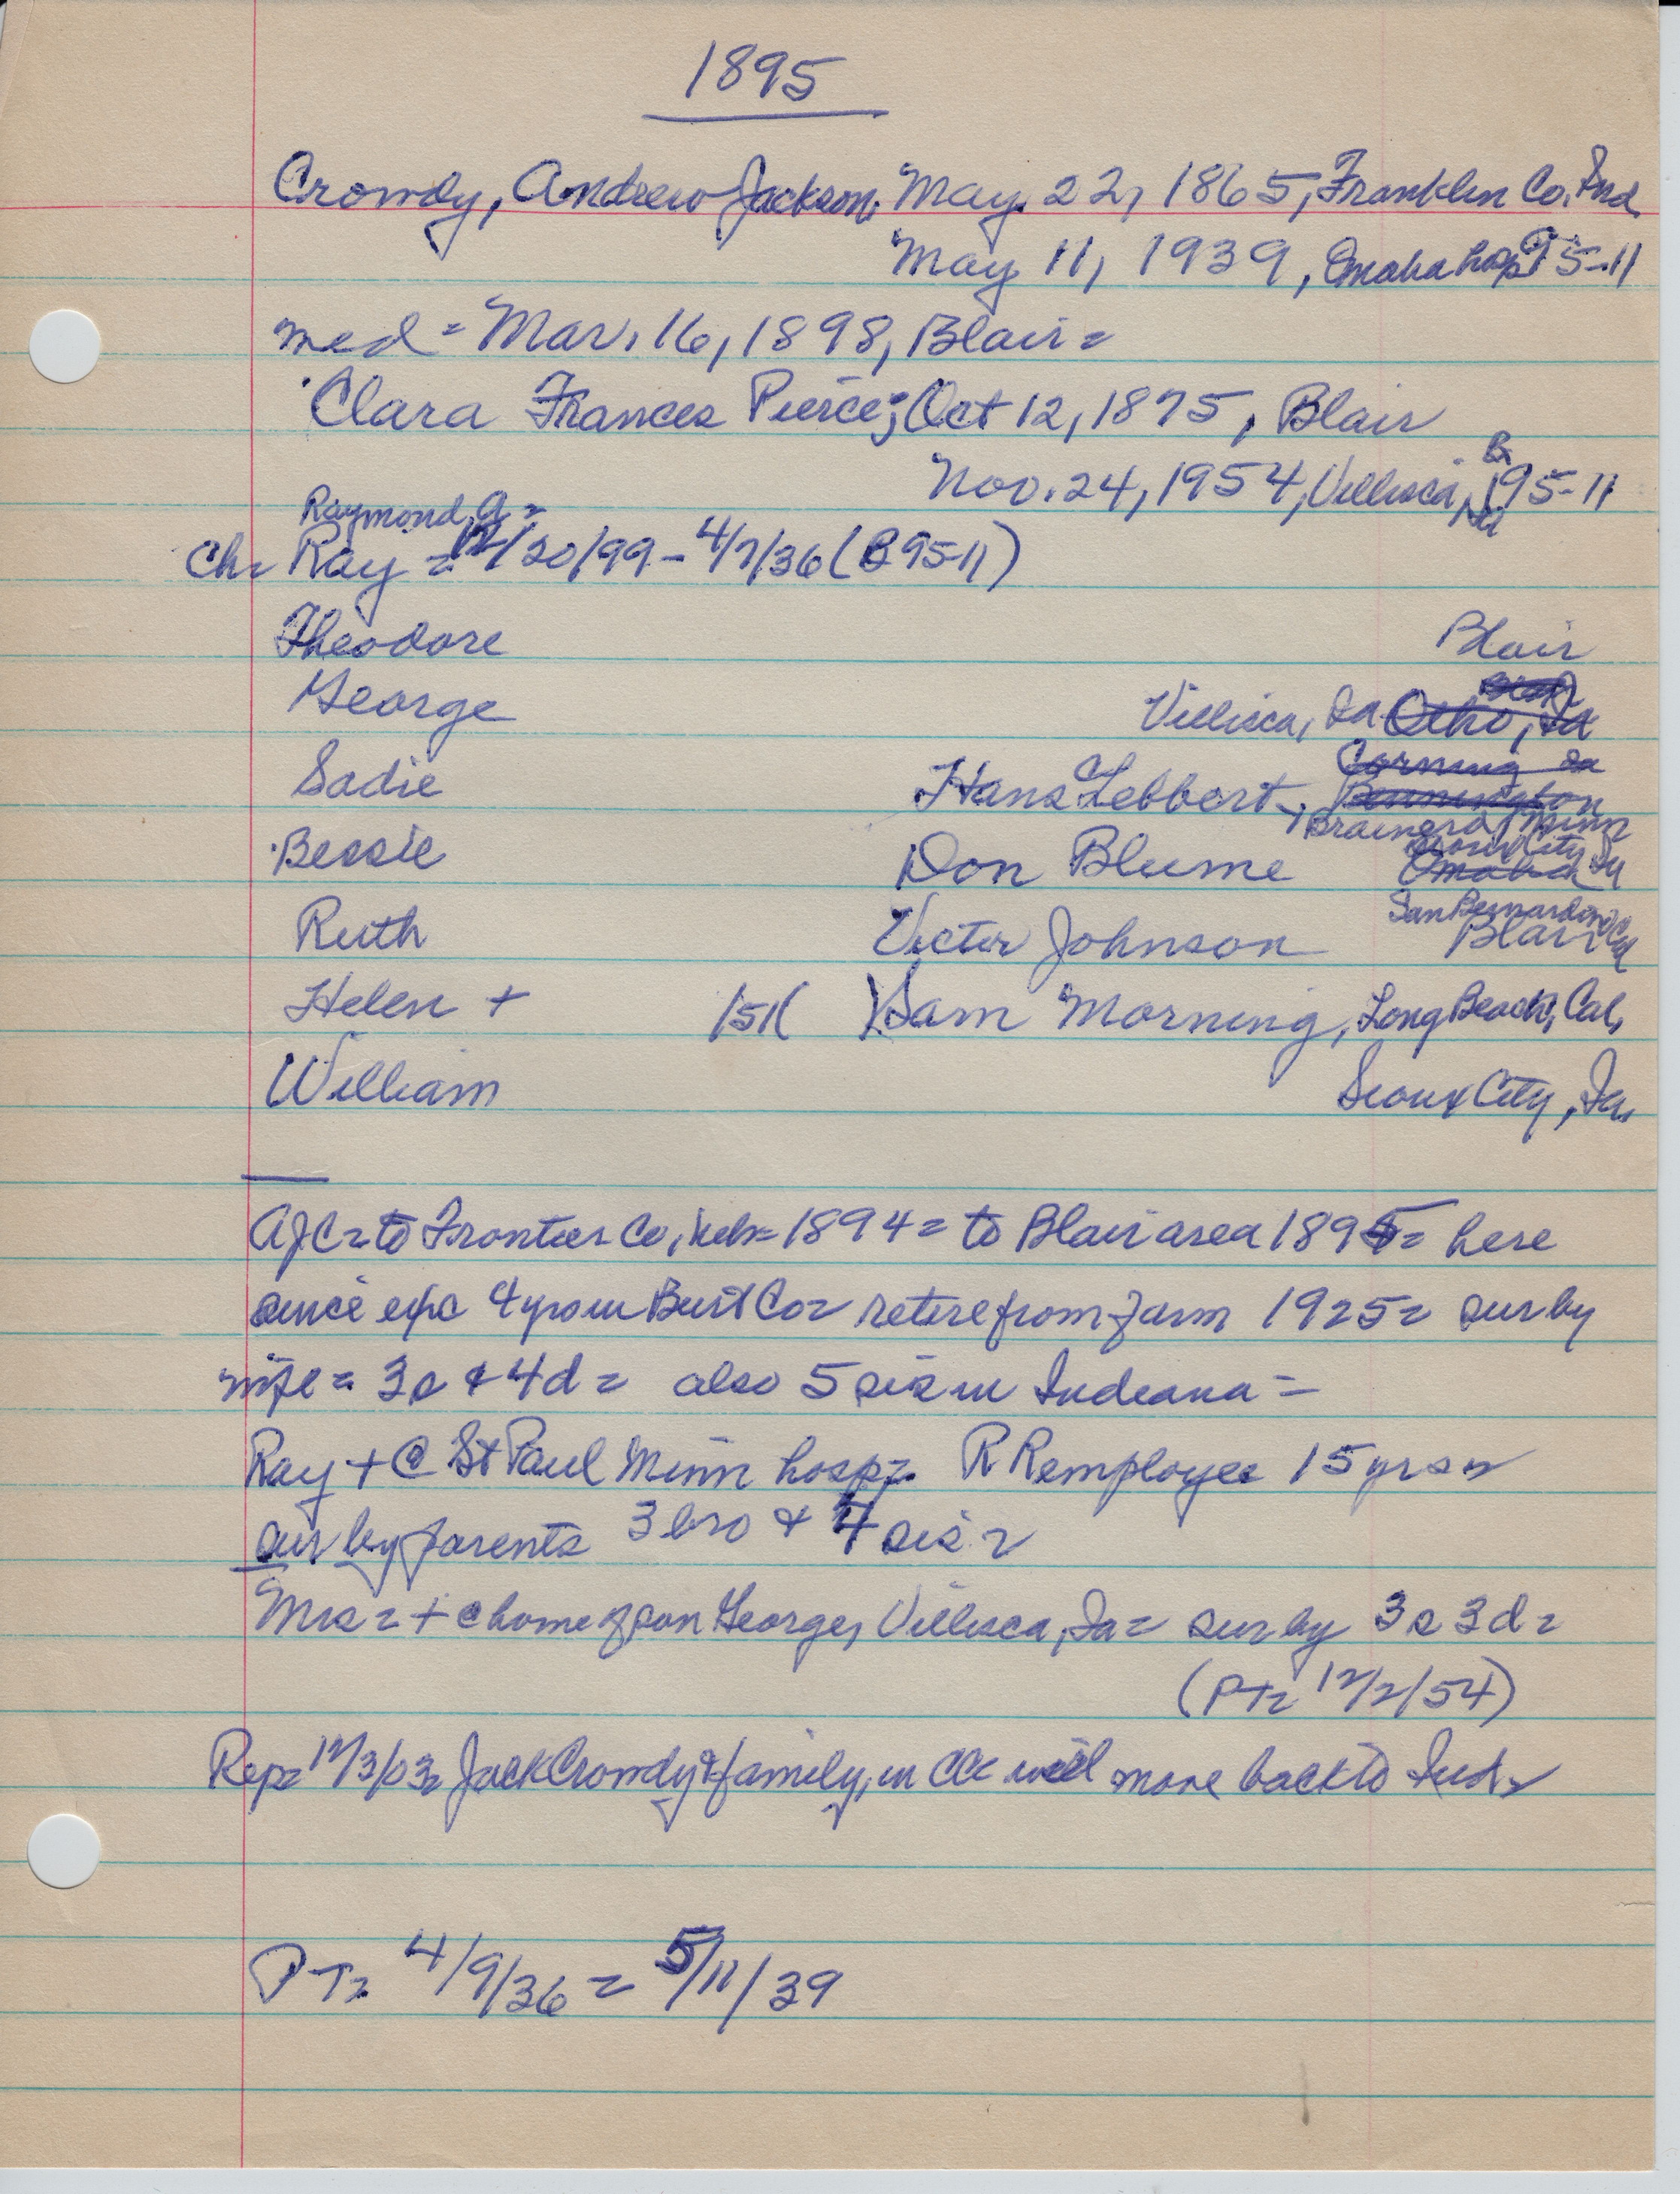 1895
Crowdy, Andrew Jackson. May 22, 1865, Franklin Co. Ind.
May 11, 1939, Omaha hosp 95-11
med = Mar. 16, 1898, Blair =
Clara Frances Pierce; Oct 12, 1875, Blair
B
Nov. 24, 1954, Villisca, Ia 95-11
Raymond A =
Ch = Ray = 12/20/99 - 4/7/36 (B 95-11)
Theodore Blair
George Villisca, Ia Otho, Ia
Corning Ia
Sadie Hans C Lebbert, Bennington
Brainerd, Minn
Sioux City Ia
Bessie Don Blume Omaha
San Bernardino Cal
Ruth Victor Johnson Blair
Helen + /51( ) Sam Morning, Long Beach, Cal,
William Sioux City, Ia,
AJC = to Frontier Co, Neb = 1894 = to Blair area 1895 = here
since exc 4 yrs in Burt Co = retire from farm 1925 = sur by
wife = 3 s & 4 d = also 5 sis in Indiana =
Ray + @ St Paul Minn hosp = RR employee 15 yrs =
sur by parents 3 bro & 4 sis =
Mrs = + @ home of son George, Villisca, Ia = sur by 3 s 3 d =
(PT = 12/2/54)
Rep = 12/3/03 = Jack Crowdy & family, in will move back to Ind =
PT = 4/9/36 = 5/11/39